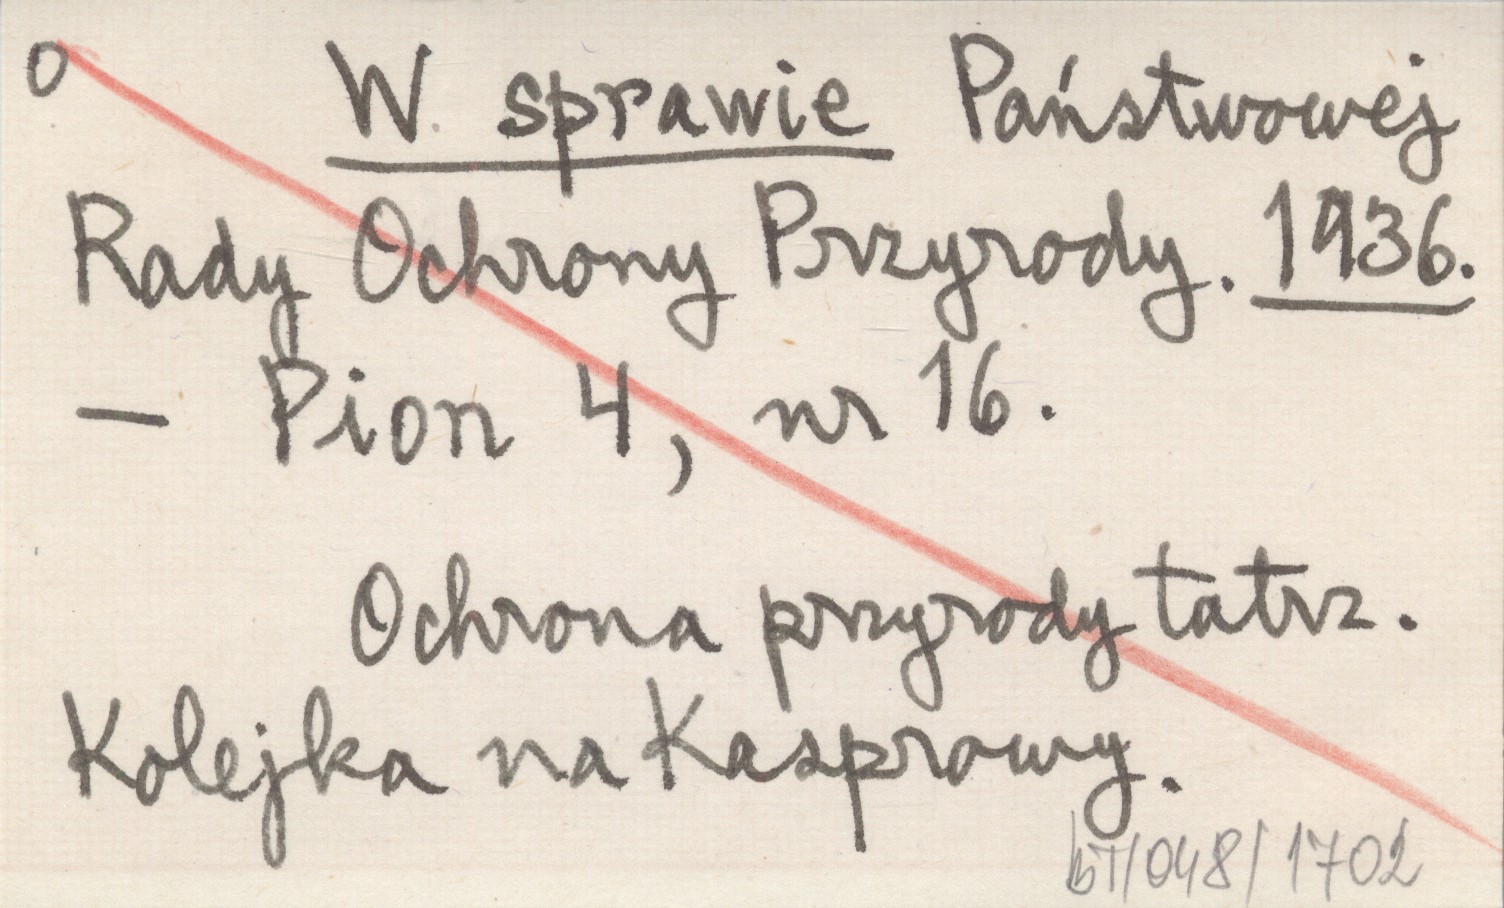 0 W sprawie Państwowej
Rady Ochrony Przyrody. 1936.
— Pion 4, nr 16.
Ochrona przyrody tatrz.
Kolejka na Kasprowy.
bT/048/1702